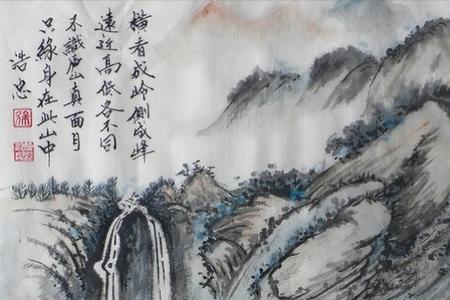 橫看成岭側成峰
遠近高低各不同
不識庐山真面目
只緣身在此山中
浩忠